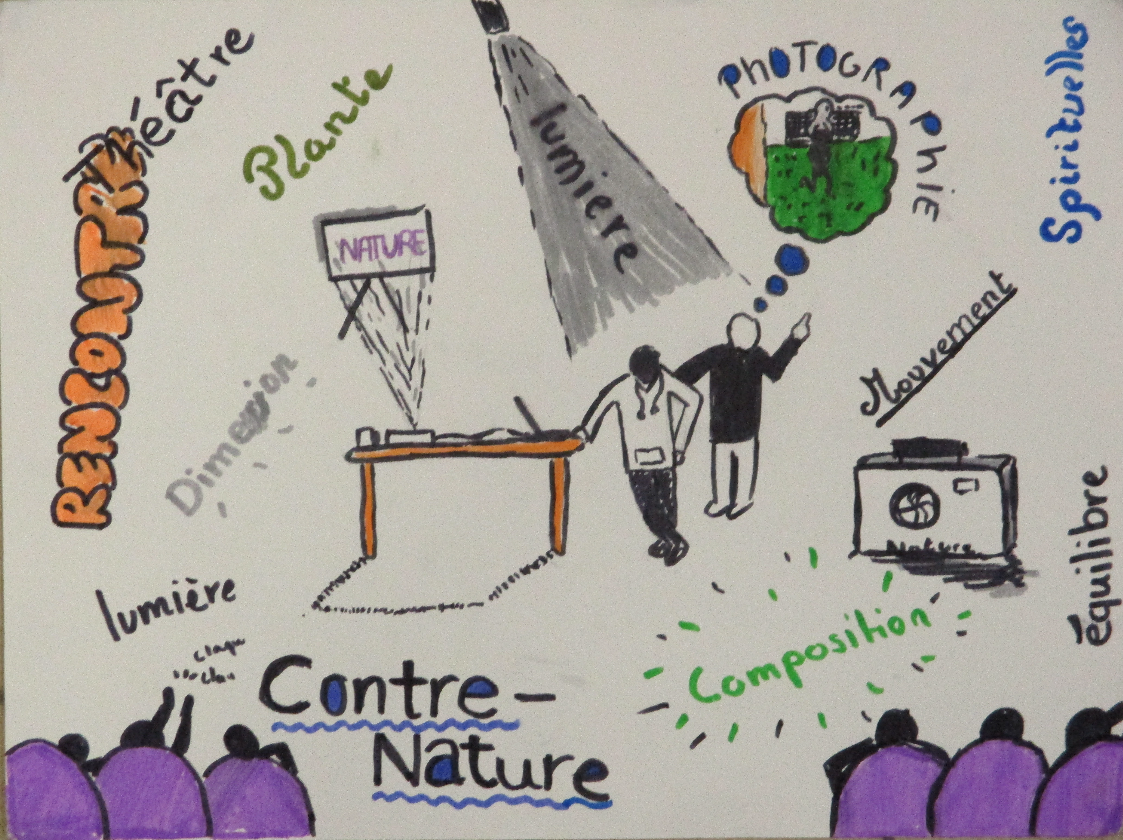 Théâtre
Plante
PhOTOGRAPhIE
Spirituelles
RENCONTRE
lumière
NATURE
Mouvement
Dimension
Nature
équilibre
lumière
claque
Composition
Contre-
Nature